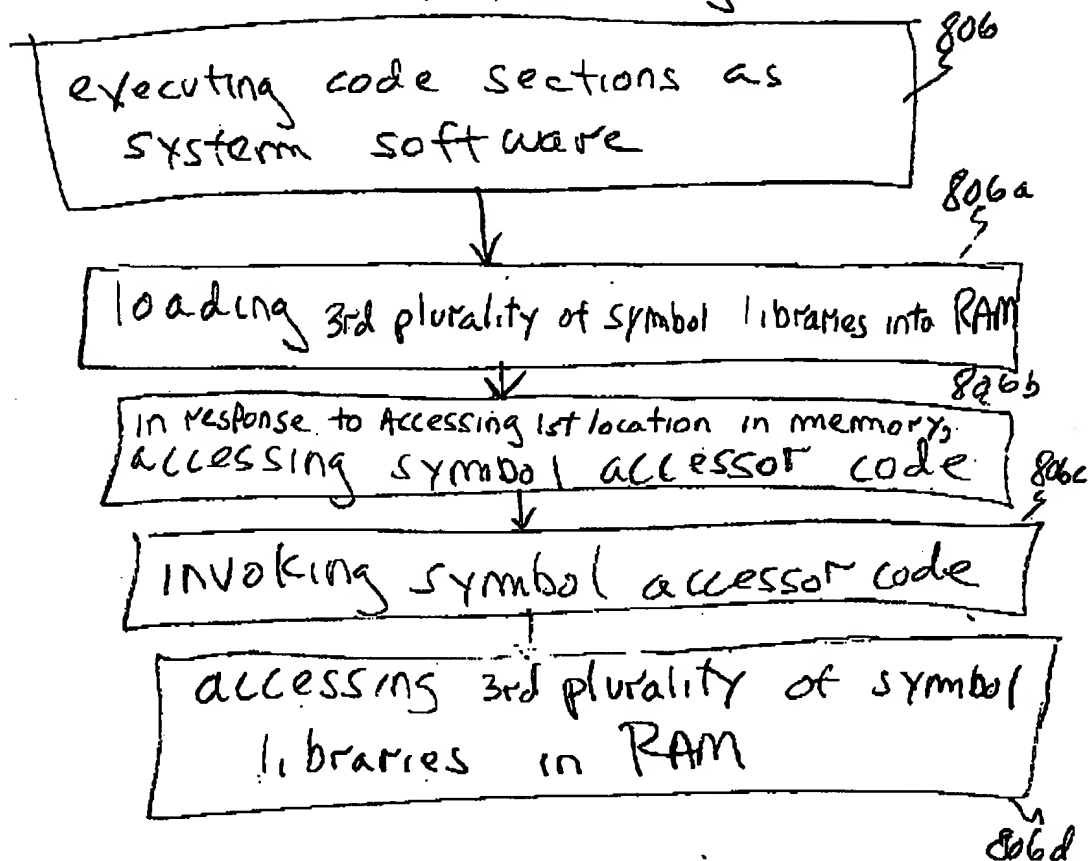 806
executing code sections as
systerm software
806a
loading 3rd plurality of symbol libraries into RAM
806b
in response to Accessing 1st location in memory,
accessing symbol accessor code
806c
invoking symbol accessor code
accessing 3rd plurality of symbol
libraries in RAM
806d